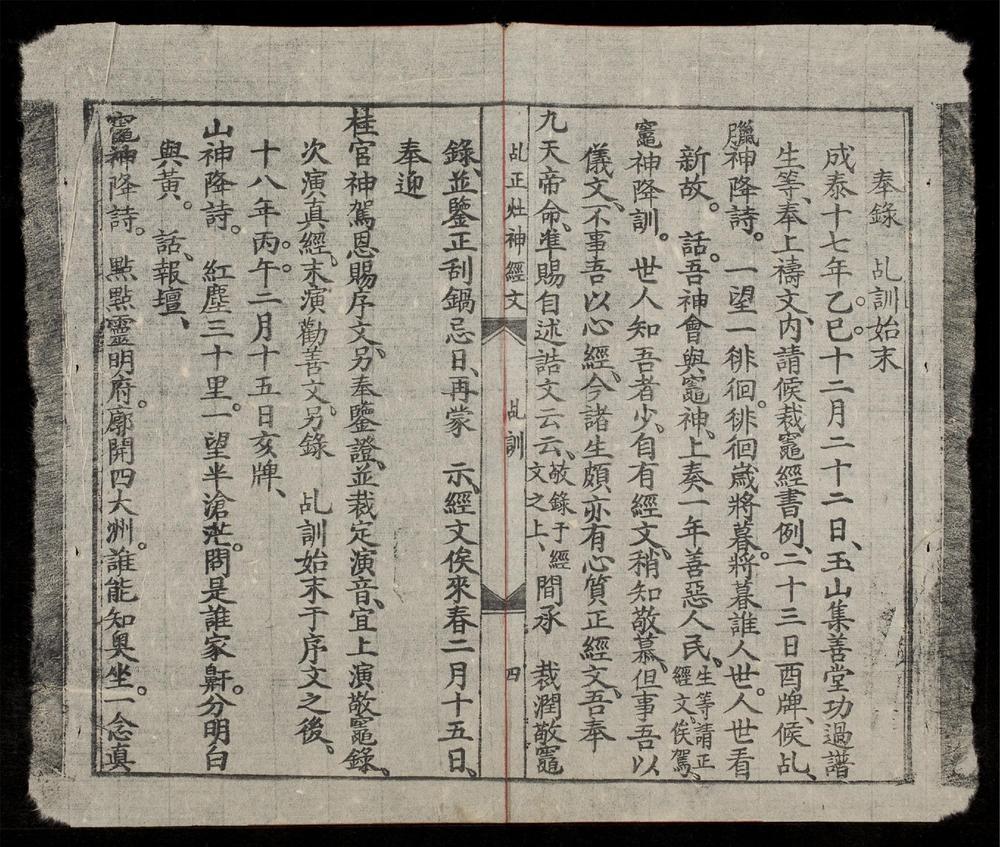 奉錄　乩訓始末
成泰十七年乙巳。十二月二十二日、玉山集善堂功過譜
生等、奉上禱文、內請候裁竈經書例、二十三日酉牌、候乩、
臘神降詩。　一望一徘徊。徘徊歲將暮。將暮誰人世。人世看
新故。　話。吾神會與竈神、上奏一年善惡人民、生等請正
經文、俟駕、
竈神降訓。　世人知吾者少、自有經文、稍知敬慕、但事吾以
儀文、不事吾以心經、今諸生頗亦有心質正經文、吾奉
九天帝命、準賜自述誥文云云、敬錄于經
文之上、間承　裁潤敬竈
乩正灶神經文　乩訓　四
錄、並鑒正刮鍋忌日、再蒙　示、經文俟來春二月十五日、
奉迎
桂宮神駕恩賜序文、另奉鑒證、並裁定演音、宜上演敬竈錄、
次演真經、末演勸善文、另錄　乩訓始末于序文之後、
十八年丙。午。二月十五日亥牌、
山神降詩。　紅塵三十里。一望半滄茫。問是誰家鼾。分明白
與黃。　話、報壇、
竈神降詩。　點點靈明府。廓開四大州。誰能知奧坐。一念真